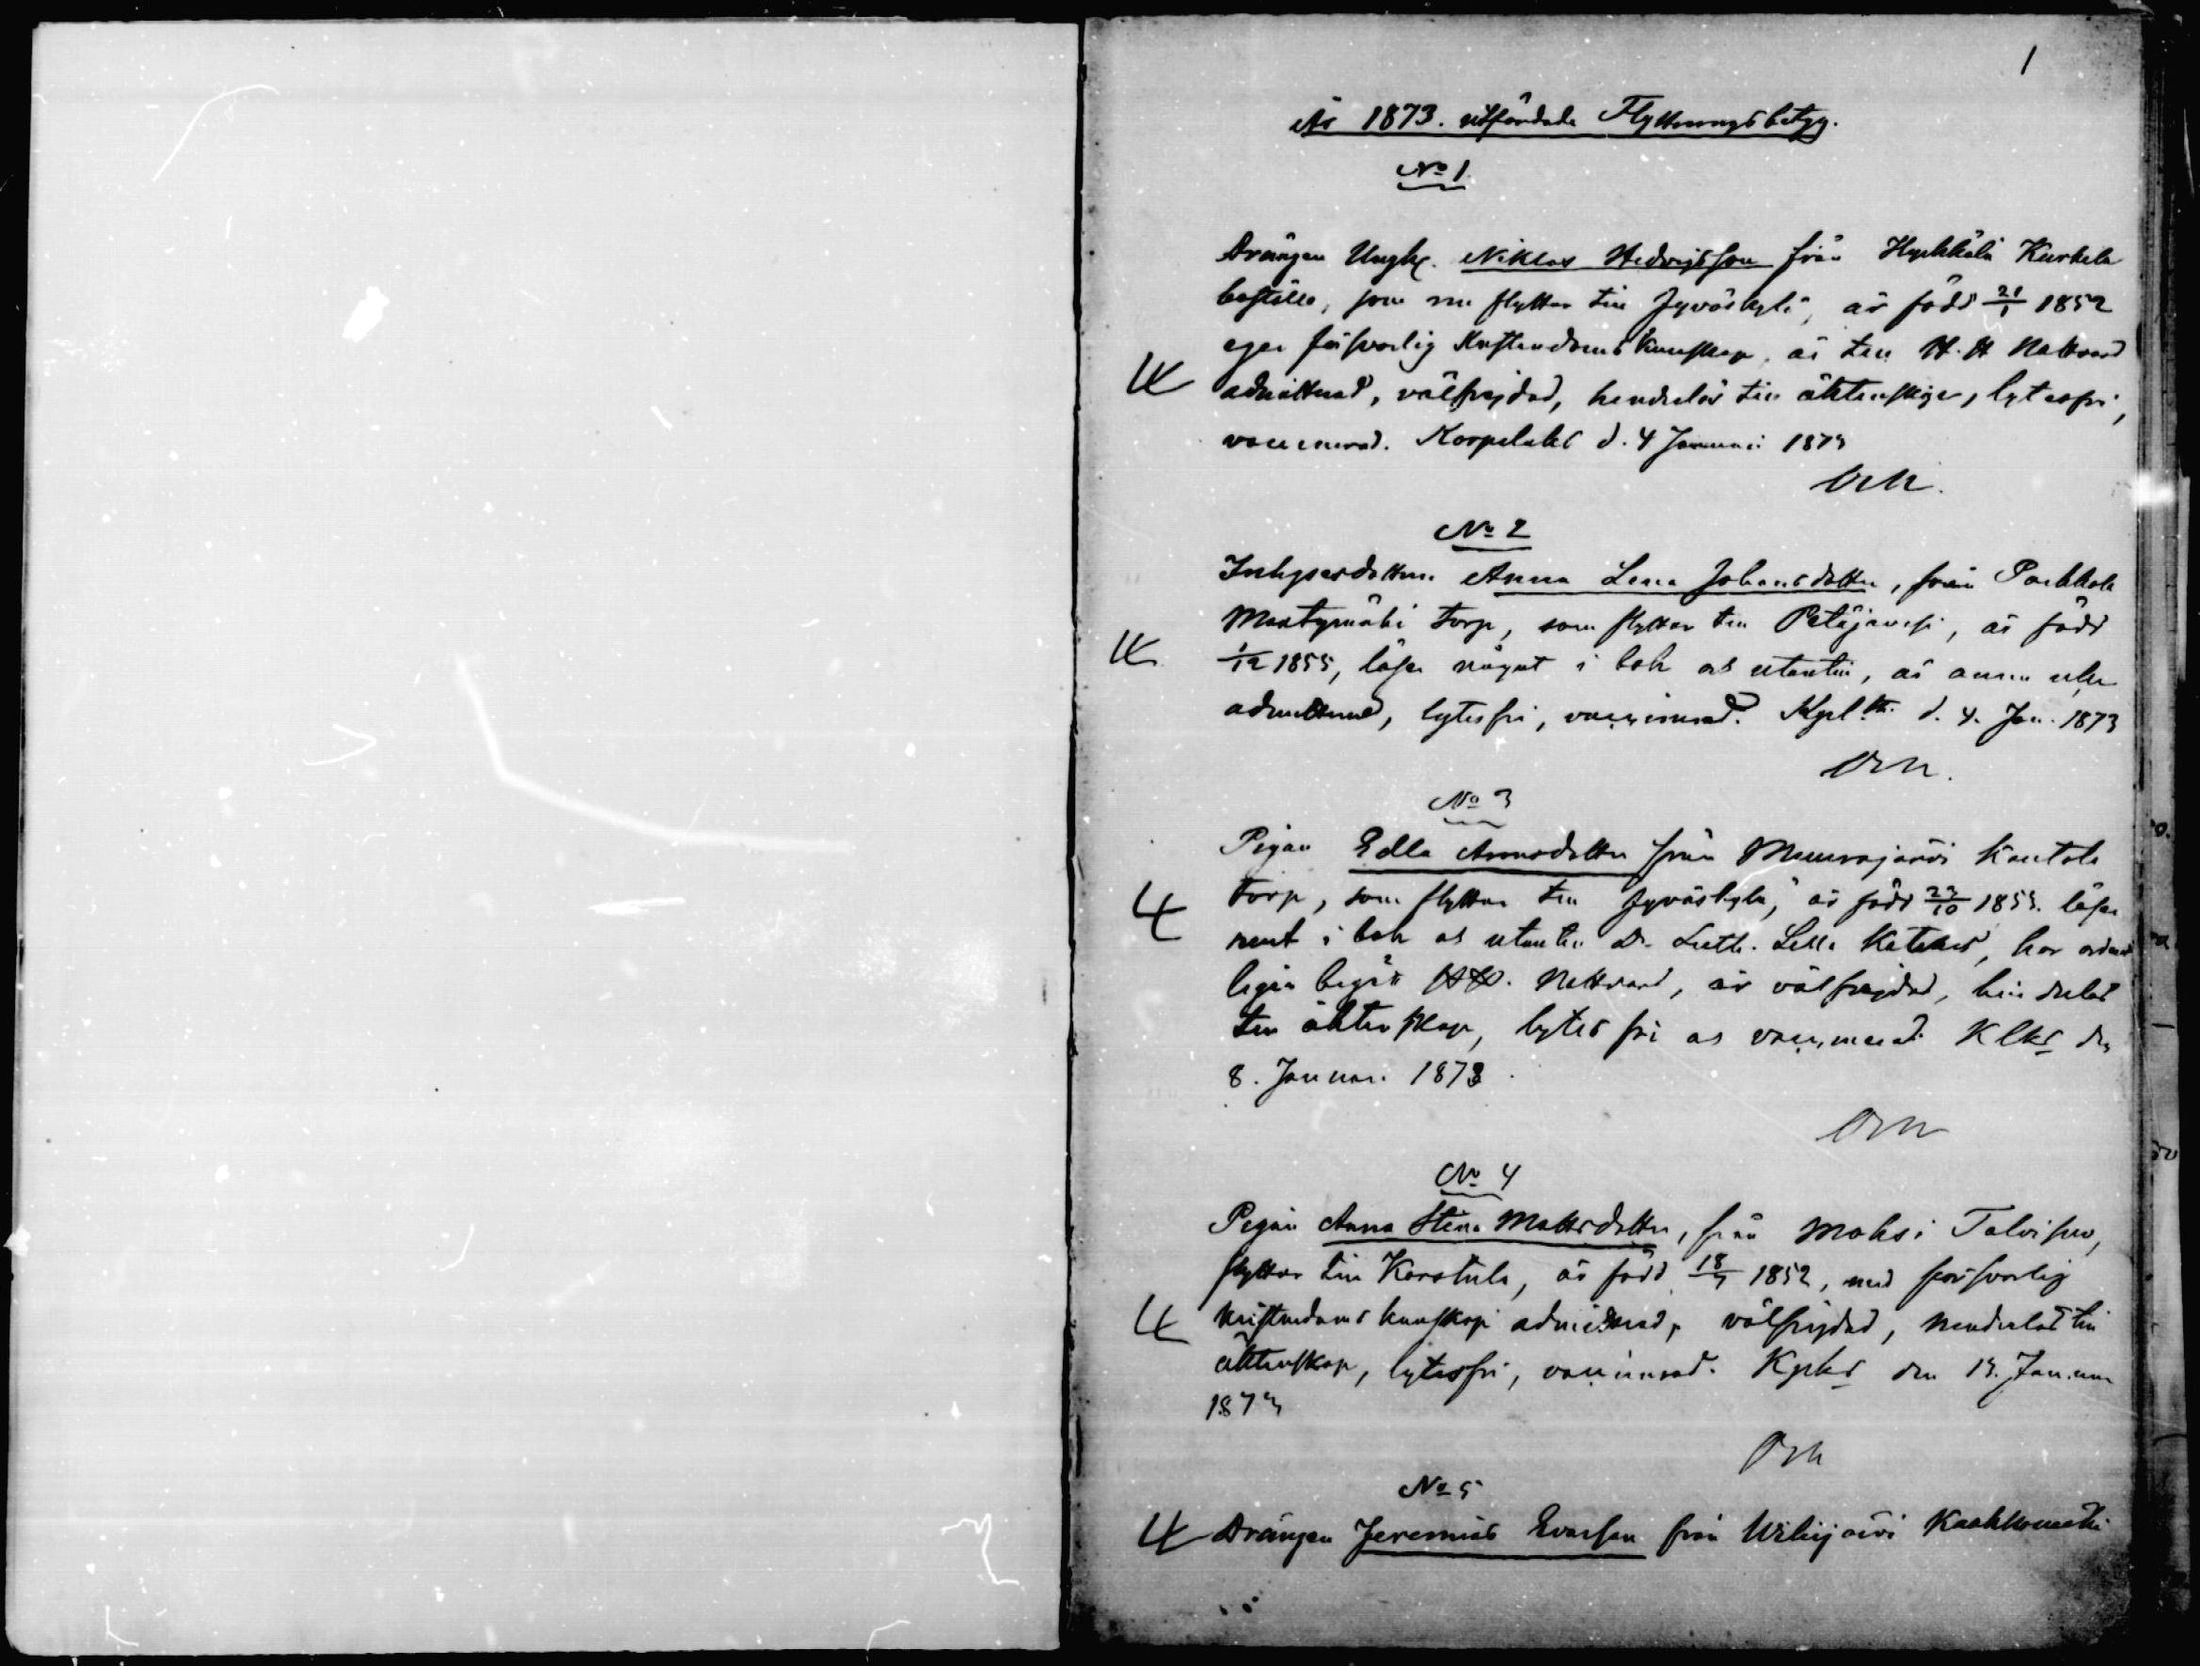 1
År 1873. utfärdade Flyttningsbetyg.
No 1
Drängen Ungk. Niklas Hedvigsson från Hyckkälä Kurkela
boställe, som nu flyttar till Jyväskylä, är född 21/1 1852
eger försvarlig Kristendoms kunskap, är till H. H. Nattvard
admitterad, välfrejdad, hinderlös till äktenskap, lytesfri,
vaccinerad. Korpilaks d. 4 Januari 1873
No 2
Inhysesdottern Anna Lena Johansdotter, från
torp, som flyttar till Petäjävesi, är född
1/12 1855, läser något i bok och utantill, är ännu icke
admitterad, lytesfri, vaccinerad. d. 4. Jan. 1873
No 3
Pigan Edla Annasdotter från Muurajärvi Kantola
torp, som flyttar till Jyväskylä, är född 23/10 1853. läser
rent i bok och utantill Dr Luth. Lilla Kateket, har ordent
ligen begått HH. Nattvard, är välfrejdad, hinderlös
till äktenskap, lytes fri och vaccinerad. Klks den
8. Januari 1873.
No 4
Pigan Anna Stina Mattsdotter, från Moksi
flyttar till Karstula, är född 18/7 1852, med försvarlig
kristendoms kunskap admitterad, välfrejdad, hinderlös till
äktenskap, lytesfri, vaccinerad. Kplks den 13. Januari
1873
No 5
Drängen Jeremias Evasson från